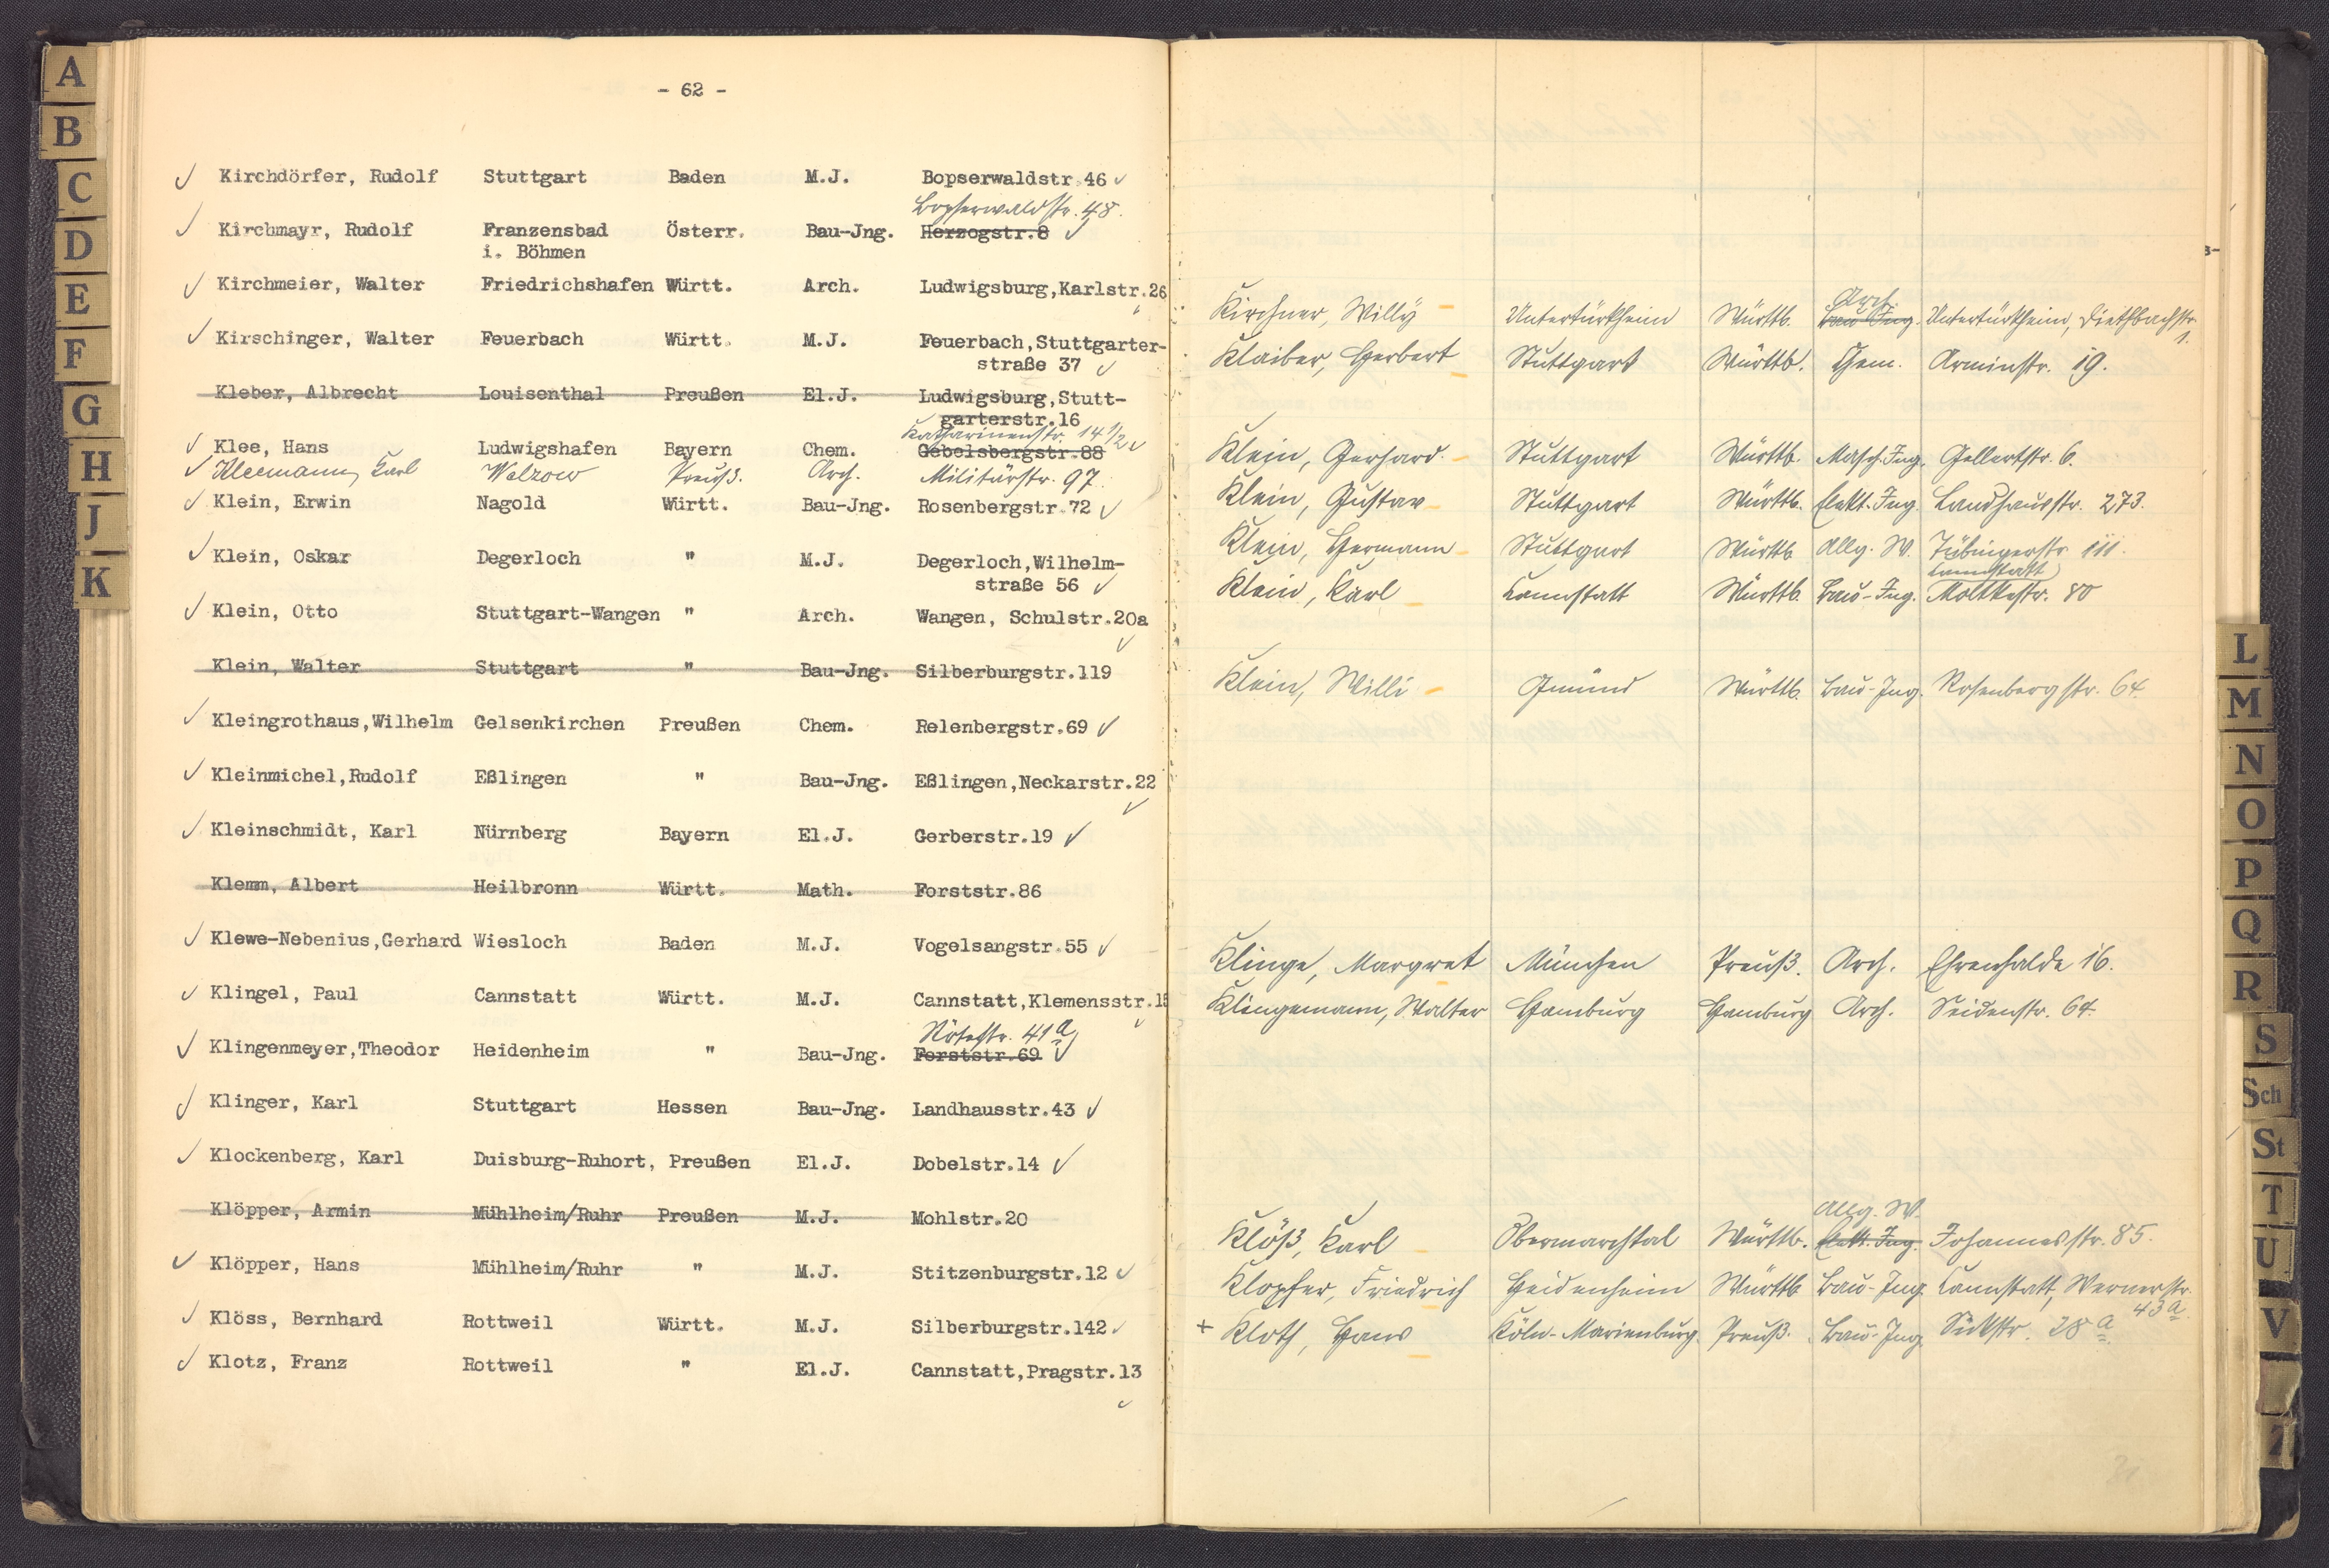 A
B
C
D
E
F
G
H
J
K
- 62 -
Kirchdörfer, Rudolf Stuttgart Baden M.J. Bopserwaldstr.46
Bopserwaldstr. 48.
Kirchmayr, Rudolf Franzensbad Österr. Bau-Jng. Herzogstr.8
i. Böhmen
Kirchmeier, Walter Friedrichshafen Württ. Arch. Ludwigsburg,Karlstr.26
Kirschinger, Walter Feuerbach Württ. M.J. Feuerbach,Stuttgarter-
straße 37
Kleber, Albrecht Louisenthal Preußen El.J. Ludwigsburg,Stutt-
garterstr.16
Katharinenstr. 14 1/2
Klee, Hans Ludwigshafen Bayern Chem. Gebelsbergstr.88
Kleemann, Karl Welzow Preuß. Arch. Militärstr. 97.
Klein, Erwin Nagold Württ. Bau-Jng. Rosenbergstr.72
Klein, Oskar Degerloch " M.J. Degerloch,Wilhelm-
straße 56
Klein, Otto Stuttgart-Wangen " Arch. Wangen, Schulstr.20a
Klein, Walter Stuttgart " Bau-Jng. Silberburgstr.119
Kleingrothaus,Wilhelm Gelsenkirchen Preußen Chem. Relenbergstr.69
Kleinmichel,Rudolf Eßlingen " Bau-Jng. Eßlingen,Neckarstr.22
Kleinschmidt, Karl Nürnberg Bayern El.J. Gerberstr.19
Klemm, Albert Heilbronn Württ. Math. Forststr.86
Klewe-Nebenius,Gerhard Wiesloch Baden M.J. Vogelsangstr.55
Klingel, Paul Cannstatt Württ. M.J. Cannstatt,Klemensstr.15
Rötestr. 41a
Klingenmeyer,Theodor Heidenheim " Bau-Jng. Forststr.69
Klinger, Karl Stuttgart Hessen Bau-Jng. Landhausstr.43
Klockenberg, Karl Duisburg-Ruhort, Preußen El.J. Dobelstr.14
Klöpper, Armin Mühlheim/Ruhr Preußen M.J. Mohlstr.20
Klöpper, Hans Mühlheim/Ruhr " M.J. Stitzenburgstr.12
Klöss, Bernhard Rottweil Württ. M.J. Silberburgstr.142
Klotz, Franz Rottweil " El.J. Cannstatt,Pragstr.13
Arch.
Kirchner, Willy Untertürkheim Württb. Bau-Ing. Untertürkheim, Diethbachstr.
1.
Klaiber, Herbert Stuttgart Württb. Chem. Arminstr. 19.
Klein, Gerhard. Stuttgart Württb. Masch.Ing. Gellertstr. 6.
Klein, Gustav Stuttgart Württb. Elekt.Ing. Landhausstr. 273.
Klein, Hermann Stuttgart Württb Allg. W. Tübingerstr. 111.
Cannstatt
Klein, Karl Cannstatt Württb. Bau-Ing. Moltkestr. 80
Klein, Willi Gmünd Württb. Bau-Ing. Rosenbergstr. 64
Klinge, Margret München Preuß. Arch. Ehrenhalde 16.
Klingemann, Walter Hamburg Hamburg Arch. Seidenstr. 64.
Allg. W.
Klöß, Karl Obermarchtal Württb. Elekt.Ing. Johannesstr. 85.
Klopfer, Friedrich Heidenheim Württb Bau-Ing. Cannstatt, Wernerstr.
43a.
+ Kloth, Hans Köln-Marienburg. Preuß. Bau-Ing. 28a
L
M
N
O
P
Q
R
S
Sch
St
T
U
V
Z